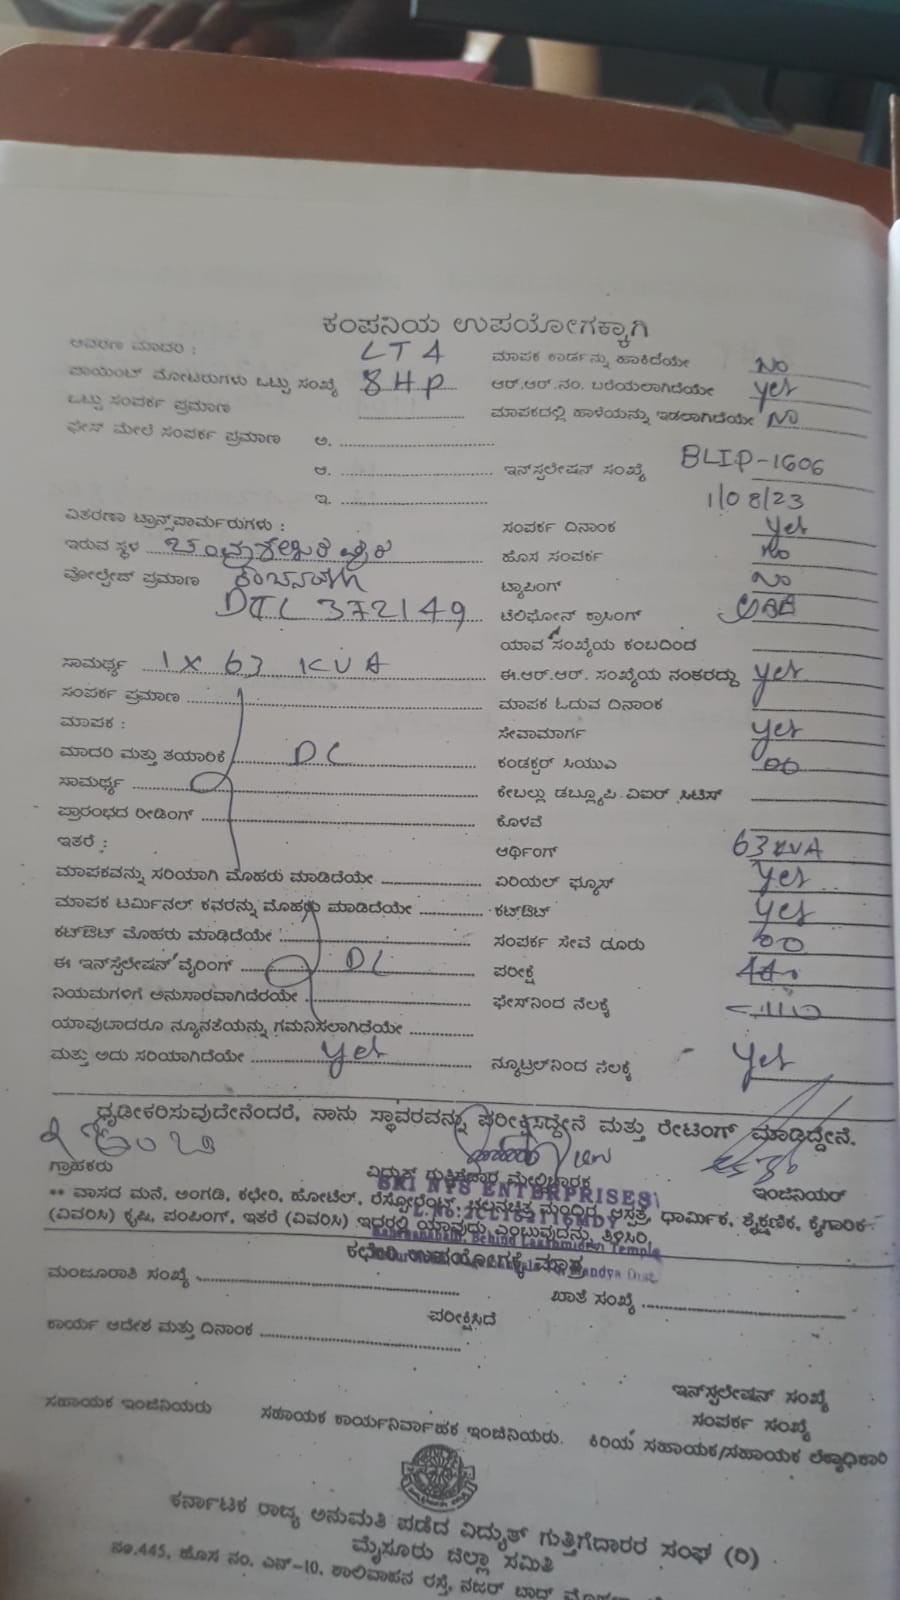 ಕಂಪನಿಯ ಉಪಯೋಗಕ್ಕಾಗಿ
ಆವರಣ ಮಾದರಿ : LT4 ಮಾಪಕ ಕಾರ್ಡನ್ನು ಹಾಕಿದೆಯೇ No
ಪಾಯಿಂಟ್ ಮೋಟರುಗಳು ಒಟ್ಟು ಸಂಖ್ಯೆ 8HP ಆರ್.ಆರ್.ನಂ. ಬರೆಯಲಾಗಿದೆಯೇ yes
ಒಟ್ಟು ಸಂಪರ್ಕ ಪ್ರಮಾಣ ಮಾಪಕದಲ್ಲಿ ಹಾಳೆಯನ್ನು ಇಡಲಾಗಿದೆಯೇ No
ಫೇಸ್ ಮೇಲೆ ಸಂಪರ್ಕ ಪ್ರಮಾಣ ಅ.
ಆ. ಇನ್‌ಸ್ಟಲೇಷನ್ ಸಂಖ್ಯೆ BLIP-1606
ಇ. 1/08/23
ವಿತರಣಾ ಟ್ರಾನ್ಸ್‌ಫಾರ್ಮರುಗಳು : ಸಂಪರ್ಕ ದಿನಾಂಕ yes
ಇರುವ ಸ್ಥಳ ಹೊಸ ಸಂಪರ್ಕ no
ವೋಲ್ಟೇಜ್ ಪ್ರಮಾಣ ಟ್ಯಾಪಿಂಗ್ No
DTL 372149 ಟೆಲಿಫೋನ್ ಕ್ರಾಸಿಂಗ್
ಯಾವ ಸಂಖ್ಯೆಯ ಕಂಬದಿಂದ
ಸಾಮರ್ಥ್ಯ 1 X 63 KVA ಈ.ಆರ್.ಆರ್. ಸಂಖ್ಯೆಯ ನಂತರದ್ದು yes
ಸಂಪರ್ಕ ಪ್ರಮಾಣ ಮಾಪಕ ಓದುವ ದಿನಾಂಕ
ಮಾಪಕ : ಸೇವಾಮಾರ್ಗ yes
ಮಾದರಿ ಮತ್ತು ತಯಾರಿಕೆ DC ಕಂಡಕ್ಟರ್ ಸಿಯುಎ
ಸಾಮರ್ಥ್ಯ ಕೇಬಲ್ಲು ಡಬ್ಲ್ಯೂಪಿ ವಿಐರ್ ಸಿಟಿಸ್
ಪ್ರಾರಂಭದ ರೀಡಿಂಗ್ ಕೊಳವೆ
ಇತರೆ : ಆರ್ಥಿಂಗ್ 63 KVA
ಮಾಪಕವನ್ನು ಸರಿಯಾಗಿ ಮೊಹರು ಮಾಡಿದೆಯೇ ಏರಿಯಲ್ ಫ್ಯೂಸ್ yes
ಮಾಪಕ ಟರ್ಮಿನಲ್ ಕವರನ್ನು ಮೊಹರು ಮಾಡಿದೆಯೇ ಕಟ್‌ಔಟ್ yes
ಕಟ್‌ಔಟ್ ಮೊಹರು ಮಾಡಿದೆಯೇ ಸಂಪರ್ಕ ಸೇವೆ ದೂರು
ಈ ಇನ್‌ಸ್ಟೆಲೇಷನ್ ವೈರಿಂಗ್ DC ಪರೀಕ್ಷೆ
ನಿಯಮಗಳಿಗೆ ಅನುಸಾರವಾಗಿದೆರಯೇ ಫೇಸ್‌ನಿಂದ ನೆಲಕ್ಕೆ
ಯಾವುದಾದರೂ ನ್ಯೂನತೆಯನ್ನು ಗಮನಿಸಲಾಗಿದೆಯೇ
ಮತ್ತು ಅದು ಸರಿಯಾಗಿದೆಯೇ yes ನ್ಯೂಟ್ರಲ್‌ನಿಂದ ನೆಲಕ್ಕೆ yes
ಧೃಡೀಕರಿಸುವುದೇನೆಂದರೆ, ನಾನು ಸ್ಥಾವರವನ್ನು ಪರೀಕ್ಷಿಸಿದ್ದೇನೆ ಮತ್ತು ರೇಟಿಂಗ್ ಮಾಡಿದ್ದೇನೆ.
ಗ್ರಾಹಕರು ವಿದ್ಯುತ್ ಗುತ್ತಿಗೆದಾರ ಮೇಲ್ವಿಚಾರಕ ಇಂಜಿನಿಯರ್
SRI NYS ENTERPRISES
** ವಾಸದ ಮನೆ, ಅಂಗಡಿ, ಕಛೇರಿ, ಹೋಟೆಲ್, ರೆಸ್ಟೋರೆಂಟ್, ಚಲನಚಿತ್ರ ಮಂದಿರ, ಆಸ್ಪತ್ರೆ, ಧಾರ್ಮಿಕ, ಶೈಕ್ಷಣಿಕ, ಕೈಗಾರಿಕೆ
(ವಿವರಿಸಿ) ಕೃಷಿ, ಪಂಪಿಂಗ್, ಇತರೆ (ವಿವರಿಸಿ) ಇದರಲ್ಲಿ ಯಾವುದು ಎಂಬುವುದನ್ನು ತಿಳಿಸಿರಿ.
Behind Laxhmidevi Temple
ಕಛೇರಿ ಉಪಯೋಗಕ್ಕೆ ಮಾತ್ರ
Mandya Dist.
ಮಂಜೂರಾತಿ ಸಂಖ್ಯೆ ಖಾತೆ ಸಂಖ್ಯೆ
ಪರೀಕ್ಷಿಸಿದೆ
ಕಾರ್ಯ ಆದೇಶ ಮತ್ತು ದಿನಾಂಕ
ಇನ್‌ಸ್ಟಲೇಷನ್ ಸಂಖ್ಯೆ
ಸಂಪರ್ಕ ಸಂಖ್ಯೆ
ಸಹಾಯಕ ಇಂಜಿನಿಯರು ಸಹಾಯಕ ಕಾರ್ಯನಿರ್ವಾಹಕ ಇಂಜಿನಿಯರು. ಕಿರಿಯ ಸಹಾಯಕ/ಸಹಾಯಕ ಲೆಕ್ಕಾಧಿಕಾರಿ
ಕರ್ನಾಟಕ ರಾಜ್ಯ ಅನುಮತಿ ಪಡೆದ ವಿದ್ಯುತ್ ಗುತ್ತಿಗೆದಾರರ ಸಂಘ (ರಿ)
ಮೈಸೂರು ಜಿಲ್ಲಾ ಸಮಿತಿ
ನಂ.445, ಹೊಸ ನಂ. ಎನ್-10, ಶಾಲಿವಾಹನ ರಸ್ತೆ, ನಜರ್ ಬಾದ್